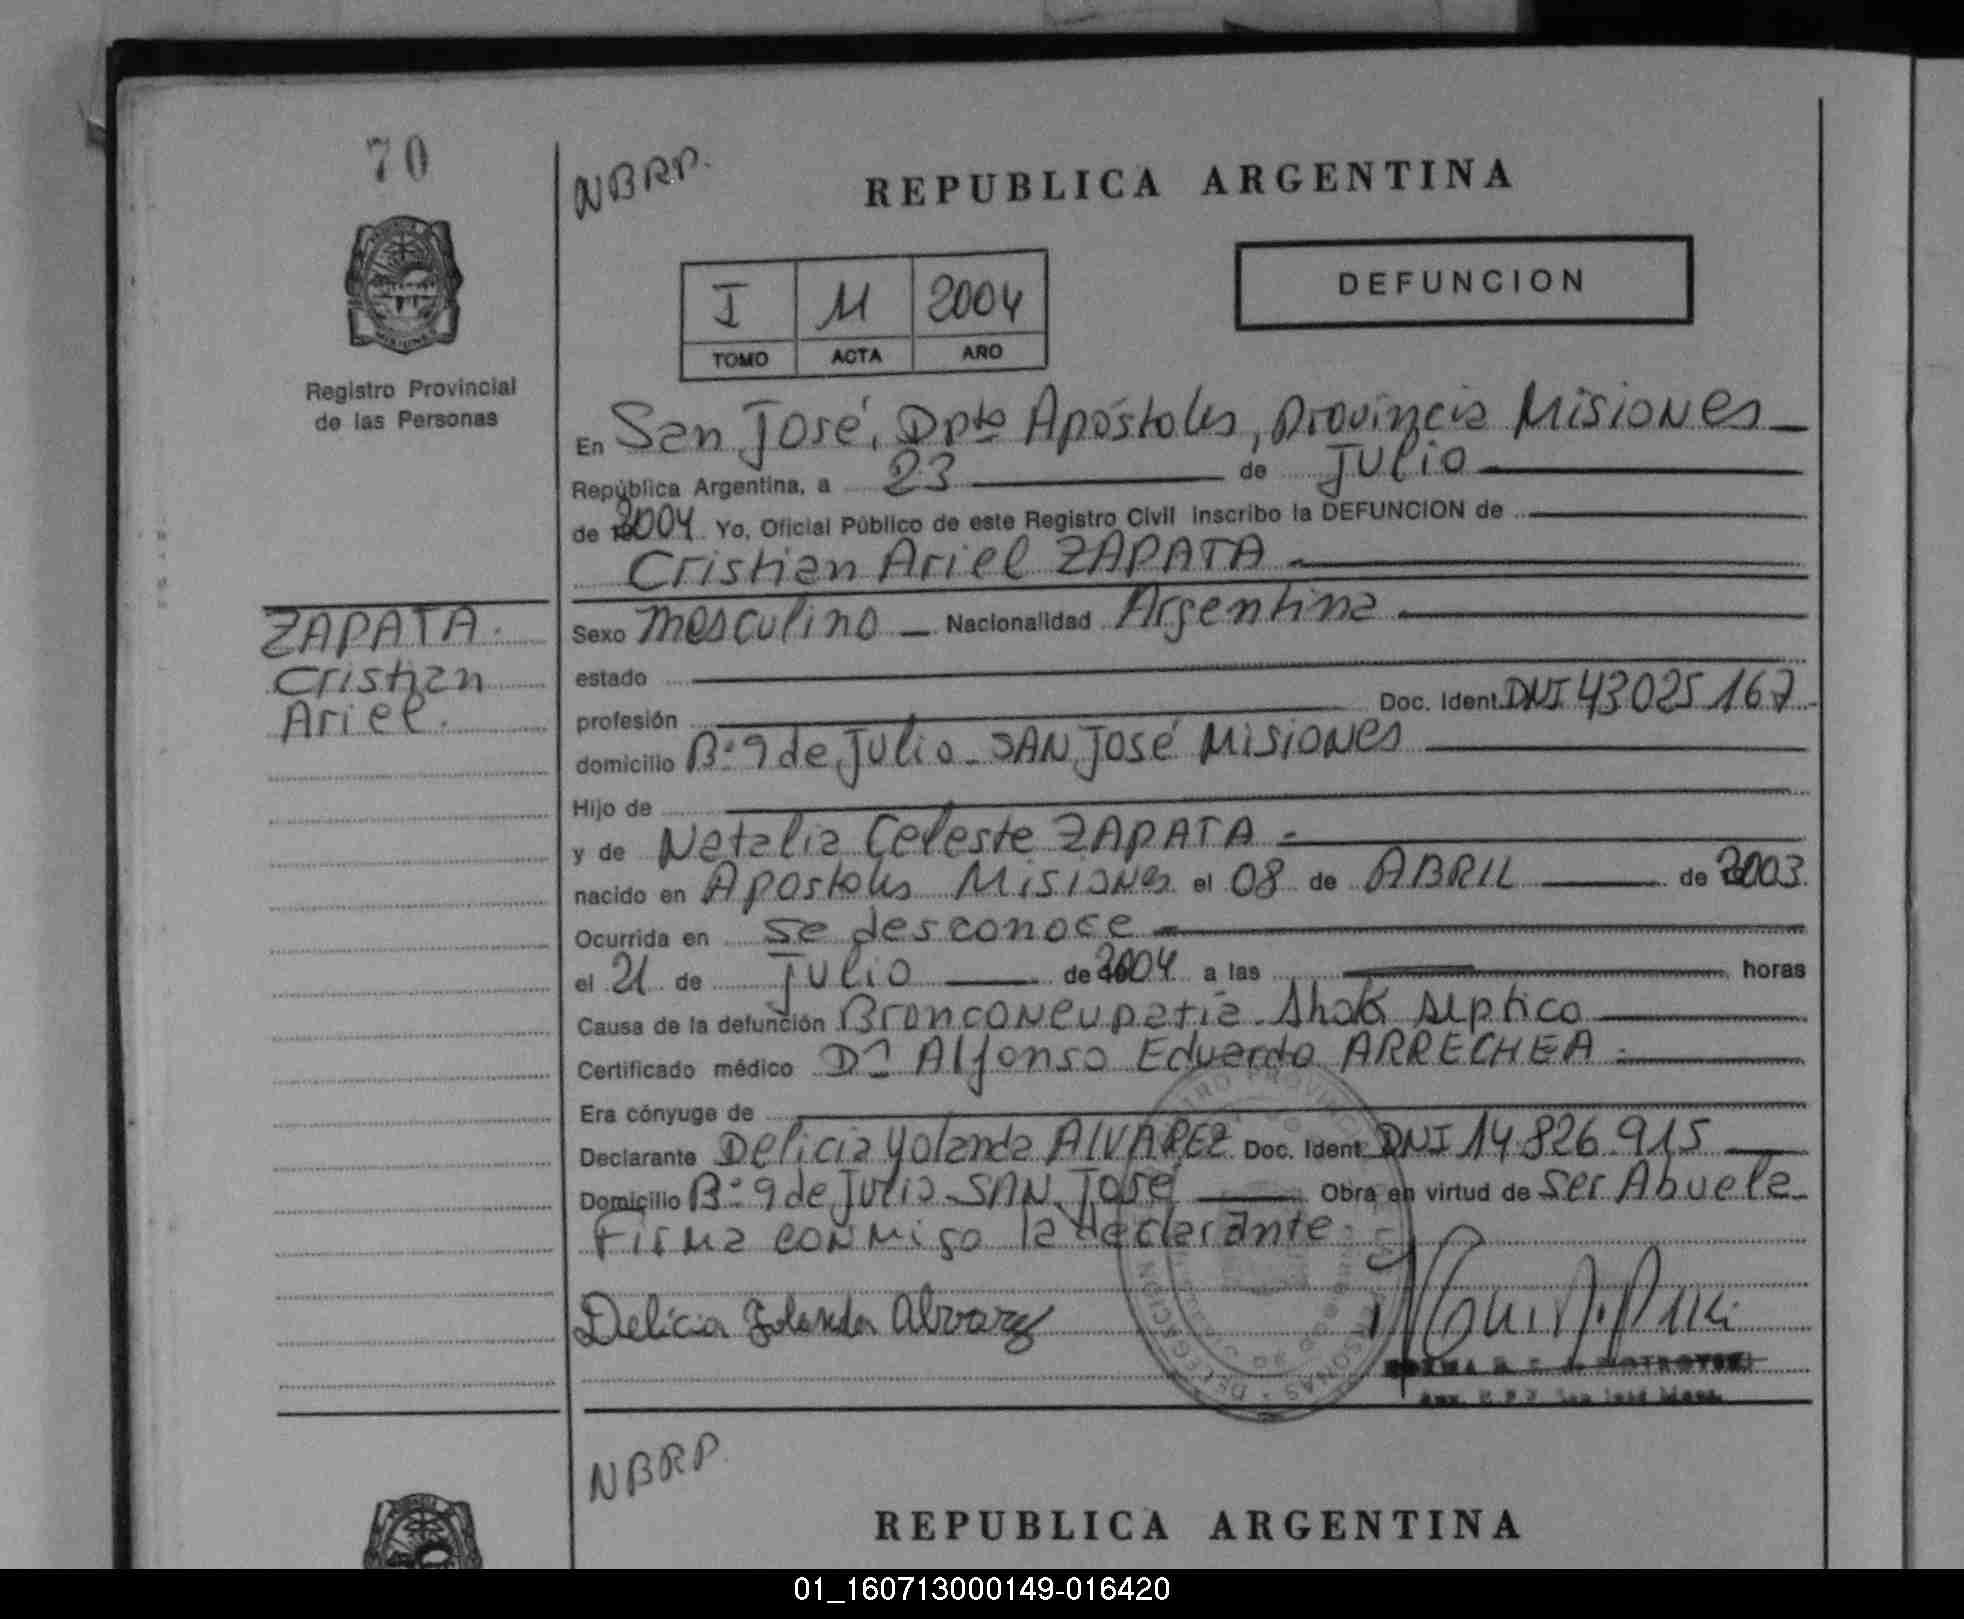 70
NBRP.
REPUBLICA ARGENTINA
I M 2004
TOMO ACTA AÑO
DEFUNCION
Registro Provincial
de las Personas
En San José, Dpto Apóstoles, Provincia Misiones
República Argentina, a 23 de Julio
de 2004 Yo, Oficial Público de este Registro Civil inscribo la DEFUNCION de
Cristian Ariel ZAPATA
ZAPATA.
Cristian
Ariel.
Sexo masculino Nacionalidad Argentina
estado
profesión Doc. Ident. DNI 43025167
domicilio Bº 9 de Julio - SAN José Misiones
Hijo de
y de Natalia Celeste ZAPATA
nacido en Apostoles Misiones el 08 de ABRIL de 2003
Ocurrida en se desconoce
el 21 de Julio de 2004 a las horas
Causa de la defunción Bronconeupatía - Shok septico
Certificado médico Dr Alfonso Eduardo ARRECHEA
Era cónyuge de
Declarante Delicia Yolanda ALVAREZ Doc. Ident. DNI 14.826.915
Domicilio Bº 9 de Julio SAN José Obra en virtud de ser Abuela
Firma conmigo la declarante
Delicia Yolanda Alvarez
NBRP.
REPUBLICA ARGENTINA
01_160713000149-016420